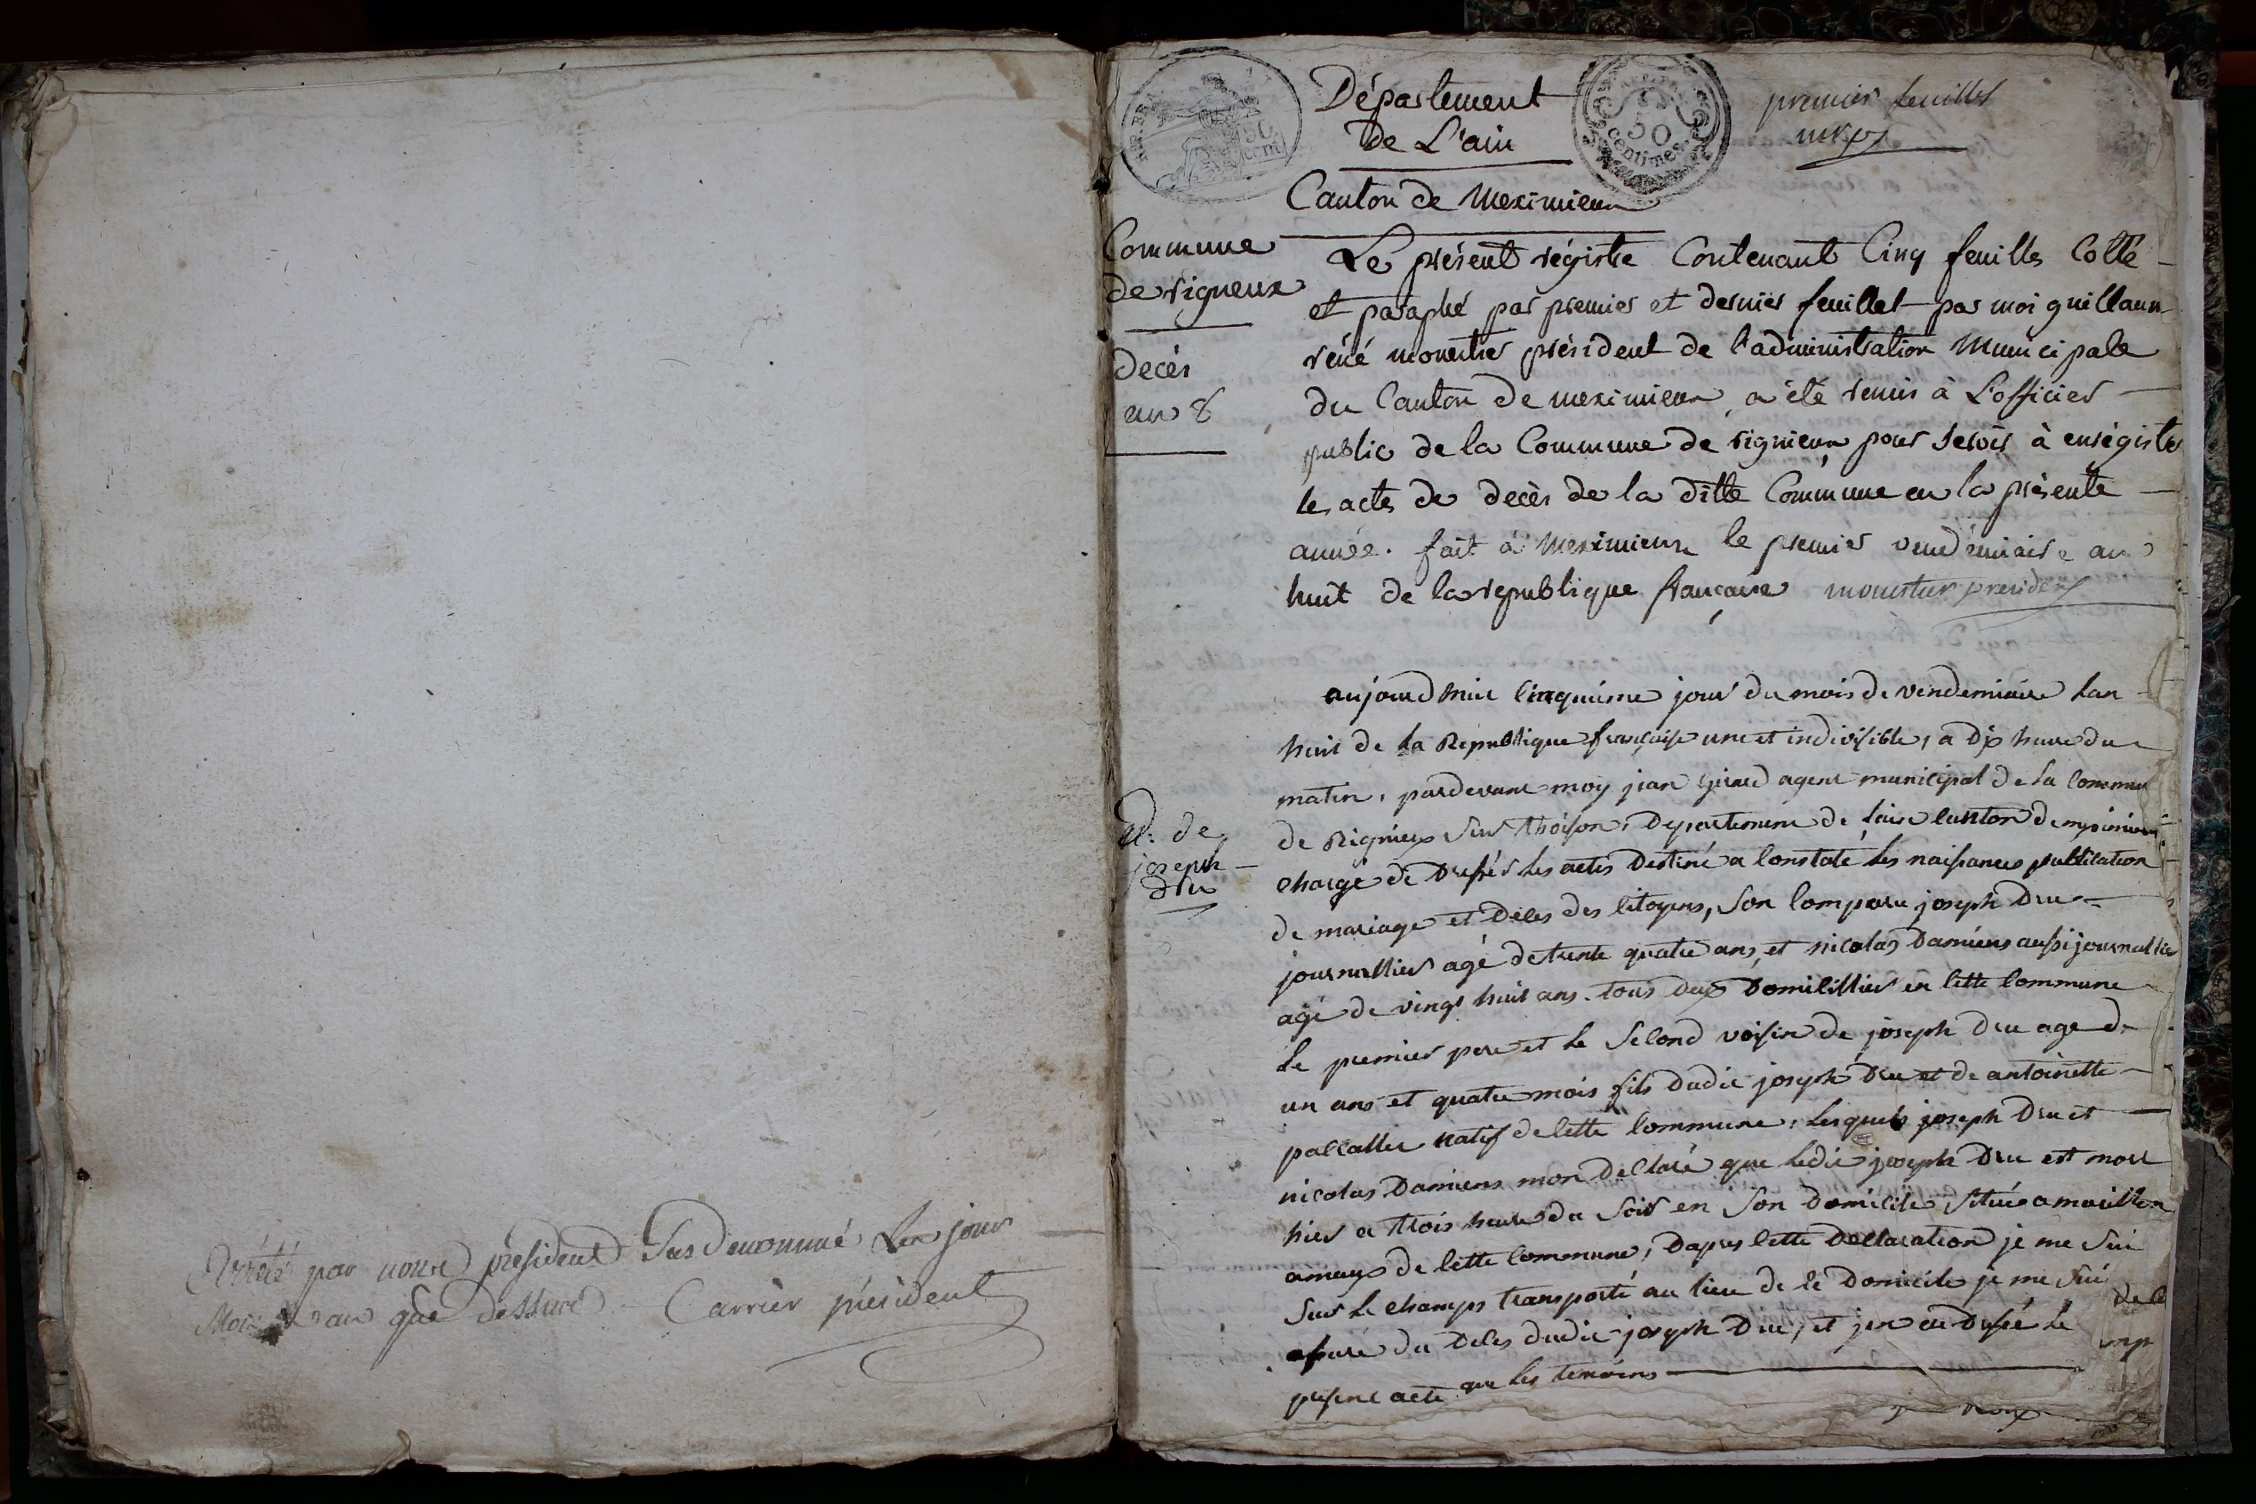 Arrêté par nous président Susdenommé Les jour
Mois et an que dessure Carrier président
Département
de L'ain
premier feuillet
Canton de Meximieux
50
centimes
Commune
de rigneux
Decès
an 8
Le présent régistre Contenant Cinq feuilles Cotté
et paraphé par premier et dernier feuillet par moi guillaum
réné monestier président de l'administration Municipale
du Canton de meximieux, a été remis à L'officier
public de la Commune de rignieux pour servir à enrégistrer
les actes de decès de la ditte Commune en la présente
année. fait à Meximieux le premier vendémiaire an
huit de la republique française monestier president
aujourdhuit Cinquieme jour du mois de vendemiaire Lan
huit de La Republique françaisse une et indivisible, a Dix heure du
matin, pardevant moy jean Girard agent municipal de La Commu
de Rignieux Sur Choison, Departement de Lain canton de meximieux
chargé de Dressér Les actes Destiné a Constaté Les naissances publication
de mariage et Déces des Citoyens, Son Comparu joseph Dru
D. de
joseph
dru
journallier agé de trente quatre ans, et nicolas Damiens aussi journallier
agé de vingt huit ans. tous deux Domicillier en Cette Commune
Le premier pere et Le Second voisin de joseph Dru age de
un ans et quatre mois fils dudit joseph Dru et de antoinette
paccallier natif de Cette Commune, Lesquels joseph Dru et
nicolas Damiens mon Declaré que Ledit joseph Dru est mort
hier a trois heure du Soir en Son Domicile Situé a
de Cette Commune, Dapres Cette Declaration je me Sui
Sur Le Champs transporté au lieu de Ce Domicile je me Sui
assuré du Déces dudit joseph Dru, et jen ai Dressé Le
present acte que Les temoins